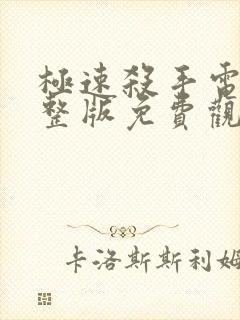 極速殺手電
整版免費觀
卡洛斯斯利姆